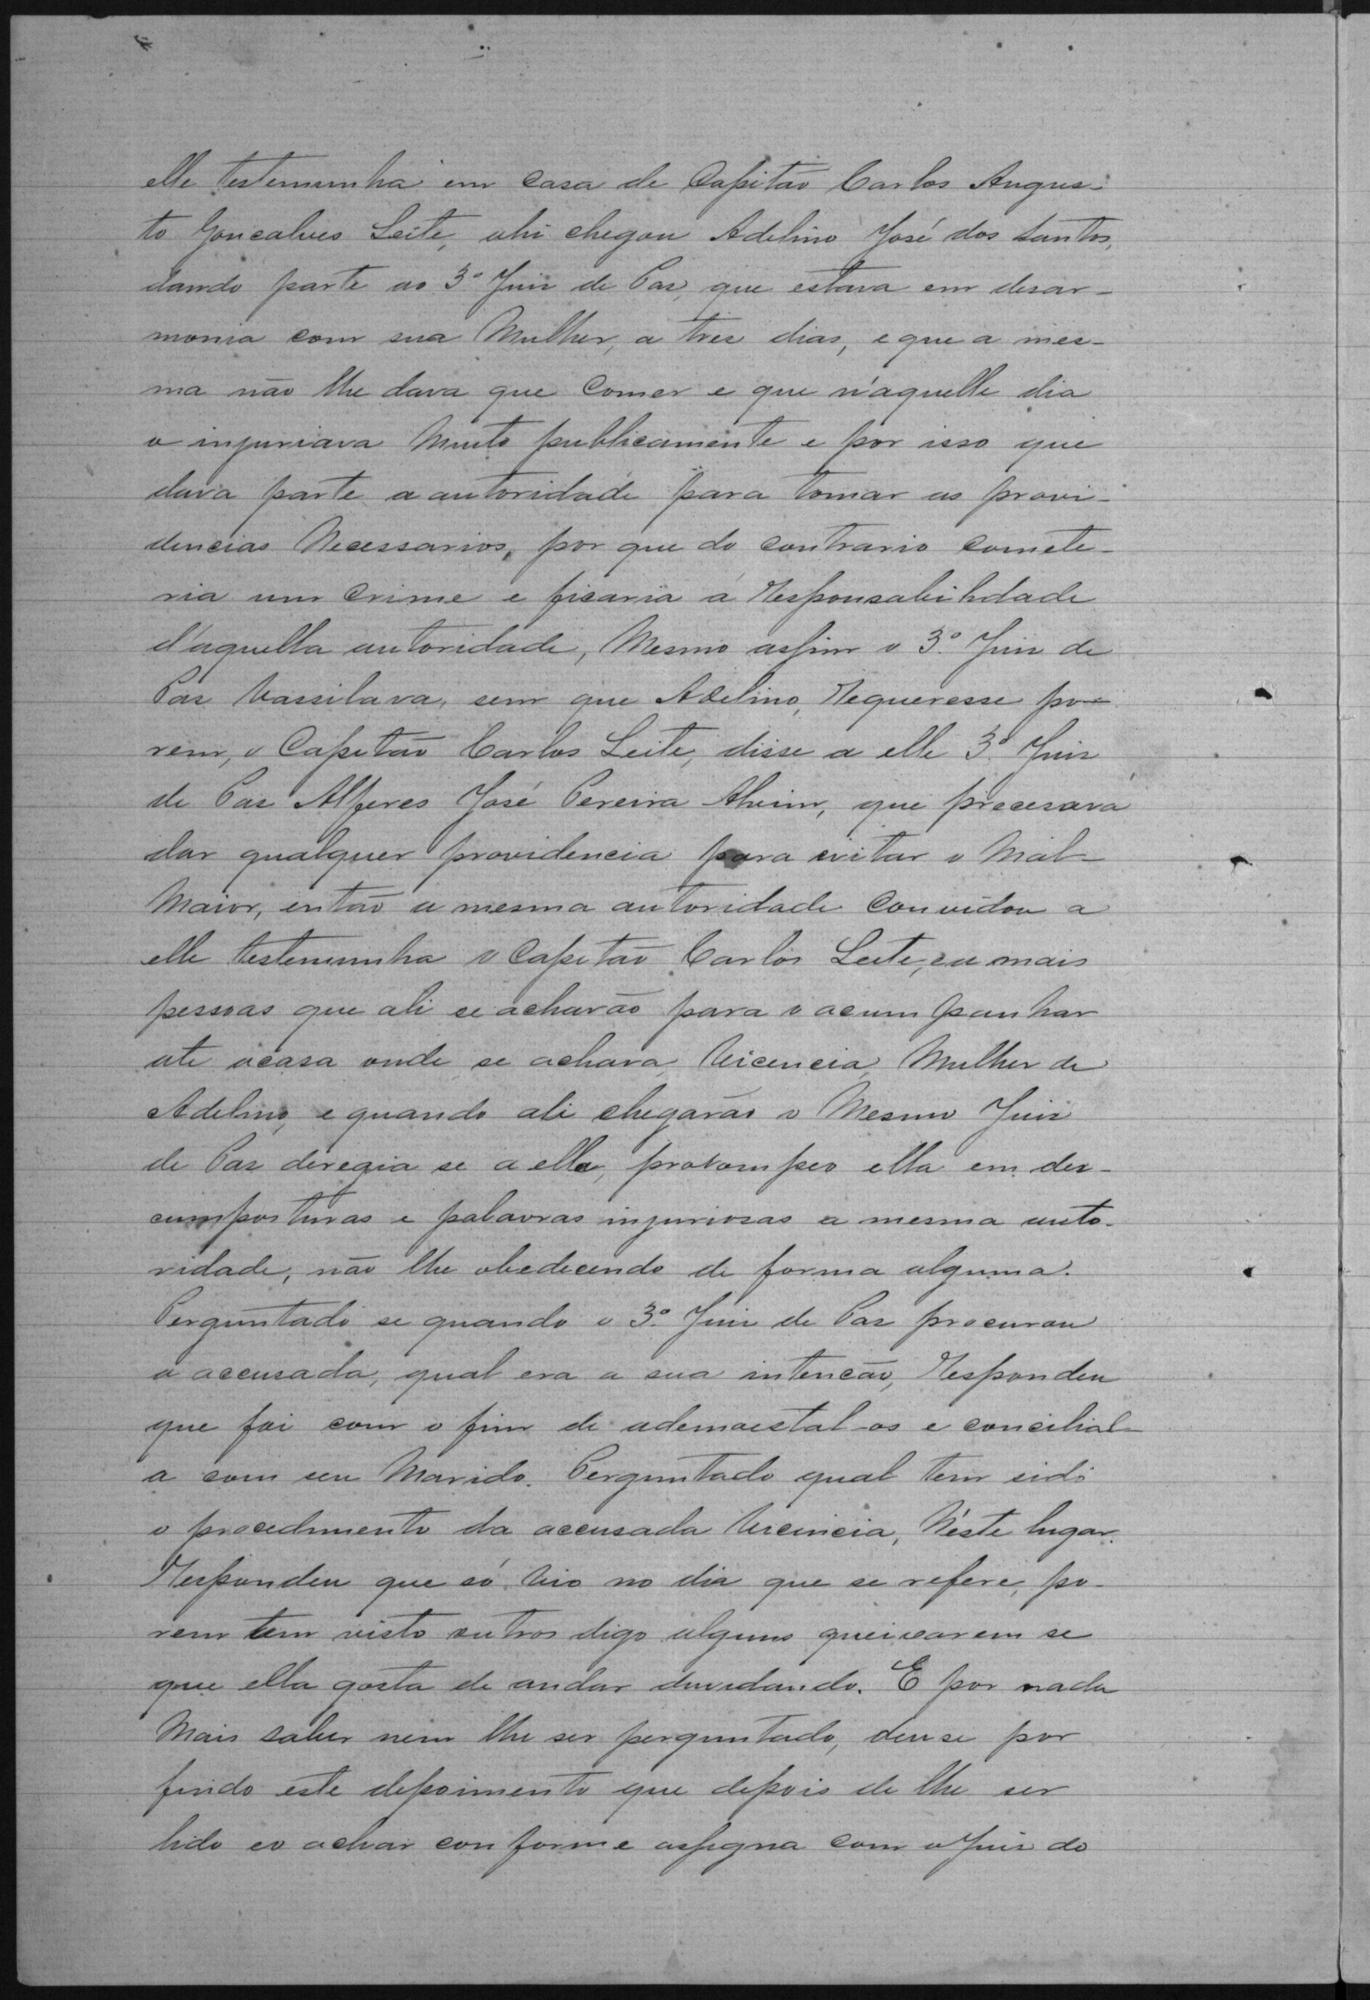 elle testemunha em casa de Capitão Carlos Augus-
to Goncalves Leite, ahi chegou Adelino José dos Santos,
dando parte ao 3º Juiz de Paz, que estava em desar-
monia com sua Mulher, a tres dias, e que a mes-
ma não lhe dava que Comer e que n'aquelle dia
o injuriava Muito publicamente e por isso que
dava parte a autoridade para tomar as provi-
dencias Necessarios, por que do contrario comete-
ria um Crime e ficaria a Responsabilidade
d'aquella autoridade, Mesmo assim o 3º Juiz de
Paz Vassilava, sem que Adelino, Requeresse po-
rem, o Capitão Carlos Leite, disse a elle 3º Juiz
de Paz Alferes José Pereira Alvim, que precesava
dar qualquer providencia para evitar o Mal-
Maior, então a mesma autoridade Convidou a
elle testemunha o Capitão Carlos Leite, ea mais
pessoas que ali se acharão para o acumpanhar
ate acasa onde se achava, Vicencia, Mulher de
Adelino, e quando ali chegarão o Mesmo Juiz
de Paz deregia se a ella, prorompeo ella em des-
cumposturas e palavras injuriosas a mesma auto-
ridade, não lhe obedecendo de forma alguma.
Perguntado se quando o 3º Juiz de Paz procurou
a accusada, qual era a sua intencão, Respondeu
que foi com o fim de ademoestal-os e concilial-
a com seu Marido. Perguntado qual tem sido
o procedimento da accusada Vicencia, N'este lugar.
Respondeu que só Vio no dia que se refere, po-
rem tem visto outros digo alguns queixarem se
que ella gosta de andar duvidando. E por nada
Mais saber nem lhe ser perguntado, deu se por
findo este depoimento que depois de lhe ser
lido eo achar conforme assigna com o Juiz do